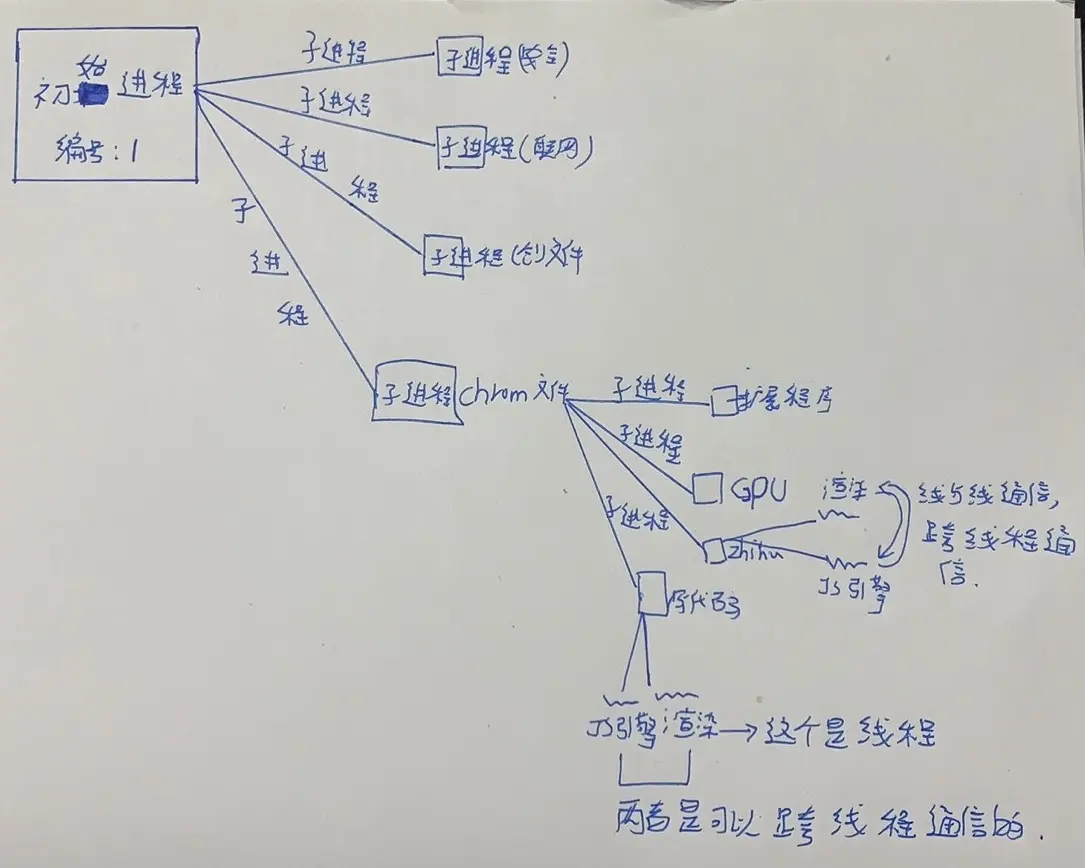 初始进程
编号:1
子进程
子进程(安全)
子进程
子进程(联网)
子进程
子进程(创文件
子进程
子进程 chrom文件
子进程
扩展程序
子进程
GPU
子进程
zhihu
渲染
JS引擎
线与线通信,
跨线程通
信.
写代码
JS引擎 渲染→这个是线程
两者是可以跨线程通信的.